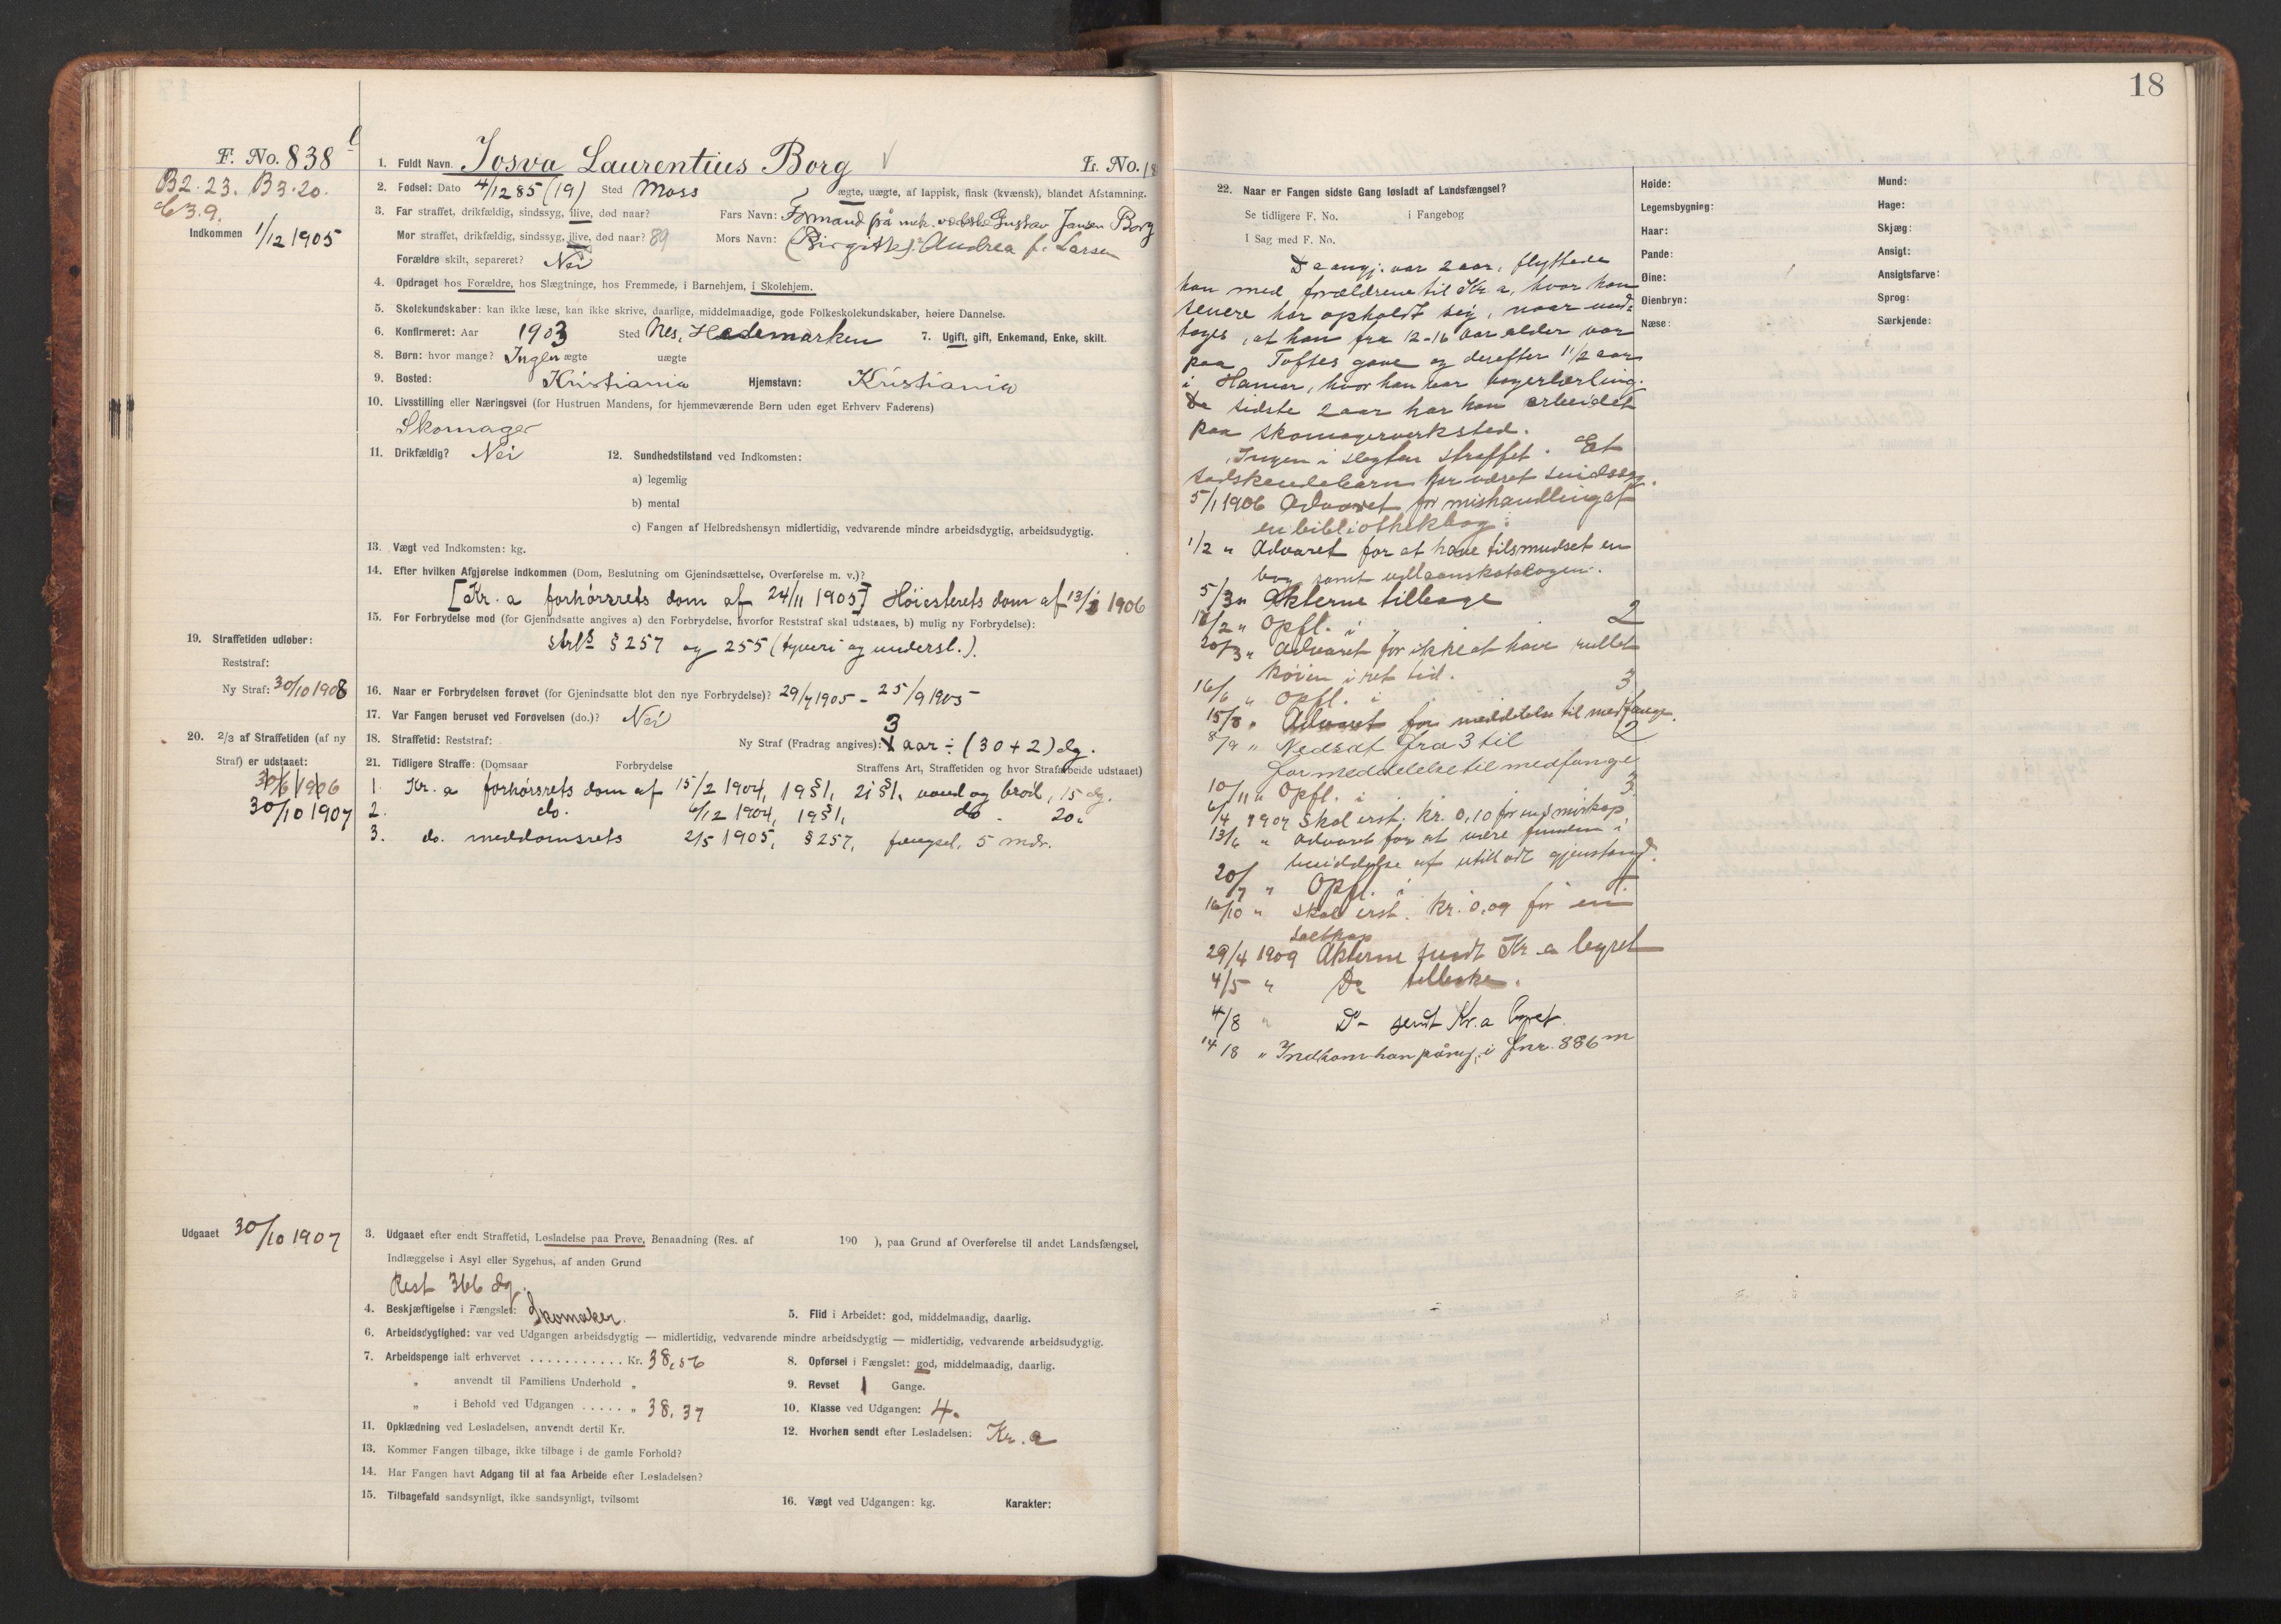 18
F. No. 838 l
B2.23. B3.20.
C 3.9.
Indkommen 1/12 1905
1. Fuldt Navn. Josva Laurentius Borg V L. No. 18
2. Fødsel: Dato 4/12 85 (19) Sted Moss ægte, uægte, af lappisk, finsk (kvænsk), blandet Afstamning.
3. Far straffet, drikfældig, sindssyg, ilive, død naar? Fars Navn: Formand på mek. verksted Gustav Jansen Borg
Mor straffet, drikfældig, sindssyg, ilive, død naar? 89 Mors Navn: (Birgitte) Andrea f. Larsen
Forældre skilt, separeret? Nei
4. Opdraget hos Forældre, hos Slægtninge, hos Fremmede, i Barnehjem, i Skolehjem.
5. Skolekundskaber: kan ikke læse, kan ikke skrive, daarlige, middelmaadige, gode Folkeskolekundskaber, høiere Dannelse.
6. Konfirmeret: Aar 1903 Sted Nes, Hedemarken 7. Ugift, gift, Enkemand, Enke, skilt.
8. Børn: hvor mange? Ingen ægte uægte
9. Bosted: Kristiania Hjemstavn: Kristiania
10. Livsstilling eller Næringsvei (for Hustruen Mandens, for hjemmeværende Børn uden eget Erhverv Faderens)
Skomager
11. Drikfældig? Nei 12. Sundhedstilstand ved Indkomsten:
a) legemlig
b) mental
c) Fangen af Helbredshensyn midlertidig, vedvarende mindre arbeidsdygtig, arbeidsudygtig.
13. Vægt ved Indkomsten: kg.
14. Efter hvilken Afgjørelse indkommen (Dom, Beslutning om Gjenindsættelse, Overførelse m. v.)?
[Kr.a forhørsrets dom af 24/11 1905] Høiesterets dom af 13/1 1906
15. For Forbrydelse mod (for Gjenindsatte angives a) den Forbrydelse, hvorfor Reststraf skal udstaaes, b) mulig ny Forbrydelse):
strl. § 257 og 255 (tyveri og undersl.).
19. Straffetiden udløber:
Reststraf:
Ny Straf: 30/10 1908
16. Naar er Forbrydelsen forøvet (for Gjenindsatte blot den nye Forbrydelse)? 29/7 1905 - 25/9 1905
17. Var Fangen beruset ved Forøvelsen (do.)? Nei
20. 2/3 af Straffetiden (af ny
Straf) er udstaaet:
30/6 1906
30/10 1907
18. Straffetid: Reststraf: Ny Straf (Fradrag angives): 3 aar ÷ (30 + 2) dg.
21. Tidligere Straffe: (Domsaar Forbrydelse Straffens Art, Straffetiden og hvor Strafarbeide udstaaet)
1. Kr.a forhørsrets dom af 15/2 1904, 19§1, 21§1, vand og brød, 15 dg.
2. do. 6/12 1904, 19§1, do. 20 "
3. do. meddomsrets 2/5 1905, § 257, fængsel, 5 mdr.
Udgaaet 30/10 1907
3. Udgaaet efter endt Straffetid, Løsladelse paa Prøve, Benaadning (Res. af 190 ), paa Grund af Overførelse til andet Landsfængsel,
Indlæggelse i Asyl eller Sygehus, af anden Grund
Rest 366 dg.
4. Beskjæftigelse i Fængslet: Skomaker. 5. Flid i Arbeidet: god, middelmaadig, daarlig.
6. Arbeidsdygtighed: var ved Udgangen arbeidsdygtig — midlertidig, vedvarende mindre arbeidsdygtig — midlertidig, vedvarende arbeidsudygtig.
7. Arbeidspenge ialt erhvervet . . . . . . . . . . . Kr. 38,56 8. Opførsel i Fængslet: god, middelmaadig, daarlig.
" anvendt til Familiens Underhold " 9. Revset 1 Gange.
" i Behold ved Udgangen . . . . . " 38,37 10. Klasse ved Udgangen: 4.
11. Opklædning ved Løsladelsen, anvendt dertil Kr. 12. Hvorhen sendt efter Løsladelsen: Kr.a
13. Kommer Fangen tilbage, ikke tilbage i de gamle Forhold?
14. Har Fangen havt Adgang til at faa Arbeide efter Løsladelsen?
15. Tilbagefald sandsynligt, ikke sandsynligt, tvilsomt 16. Vægt ved Udgangen: kg. Karakter:
22. Naar er Fangen sidste Gang løsladt af Landsfængsel?
Se tidligere F. No. i Fangebog
I Sag med F. No.
Da angj. var 2 aar, flyttede
han med forældrene til Kr.a, hvor han
senere har opholdt sig, naar und-
tages, at han fra 12-16 aar alder var
paa Toftes gave og derefter 1 1/2 aar
i Hamar, hvor han var bagerlærling.
De sidste 2 aar har han arbeidet
paa skomagerverksted.
Ingen i slegten straffet. Et
sødskendebarn har været sindssyg.
5/1 1906 Advaret for mishandling af
en bibliothekbog.
1/2 " Advaret for at have tilsmudset en
bog samt udlaanskatalogen.
5/3 " Akterne tilbage
18/2 " Opfl. i 2
20/3 " Advaret for ikke at have rullet
køien i ret tid.
16/6 " Opfl. i 3
15/8 " Advaret for meddelelse til medfange.
8/9 " Nedsat fra 3 til 2
for meddelelse til medfange
10/11 " Opfl. i 3
6/4 1907 Skal erst. kr. 0,10 for
13/6 " Advaret for at være funden i
besiddelse af utilladt gjenstand.
20/7 " Opfl. i 4
16/10 " Skal erst. kr. 0,09 for en
saltkop
29/4 1909 Akterne sendt Kr.a byret
4/5 " Do tilbake.
4/8 " Do sendt Kr.a byret.
14/8 " Indkom han påny i fnr. 886 m
Høide:
Legemsbygning:
Haar:
Pande:
Øine:
Øienbryn:
Næse:
Mund:
Hage:
Skjæg:
Ansigt:
Ansigtsfarve:
Sprog:
Særkjende: